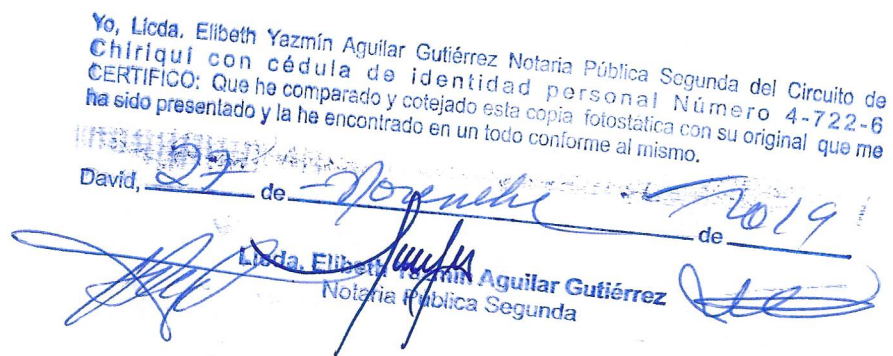 Yo, Licda. Elibeth Yazmín Aguilar Gutiérrez Notaria Pública Segunda del Circuito de
Chiriquí con cédula de identidad personal Número 4-722-6
CERTIFICO: Que he comparado y cotejado esta copia fotostática con su original que me
ha sido presentado y la he encontrado en un todo conforme al mismo.
David, 27 de Noviembre de 2019
Licda. Elibeth Yazmín Aguilar Gutiérrez
Notaria Pública Segunda